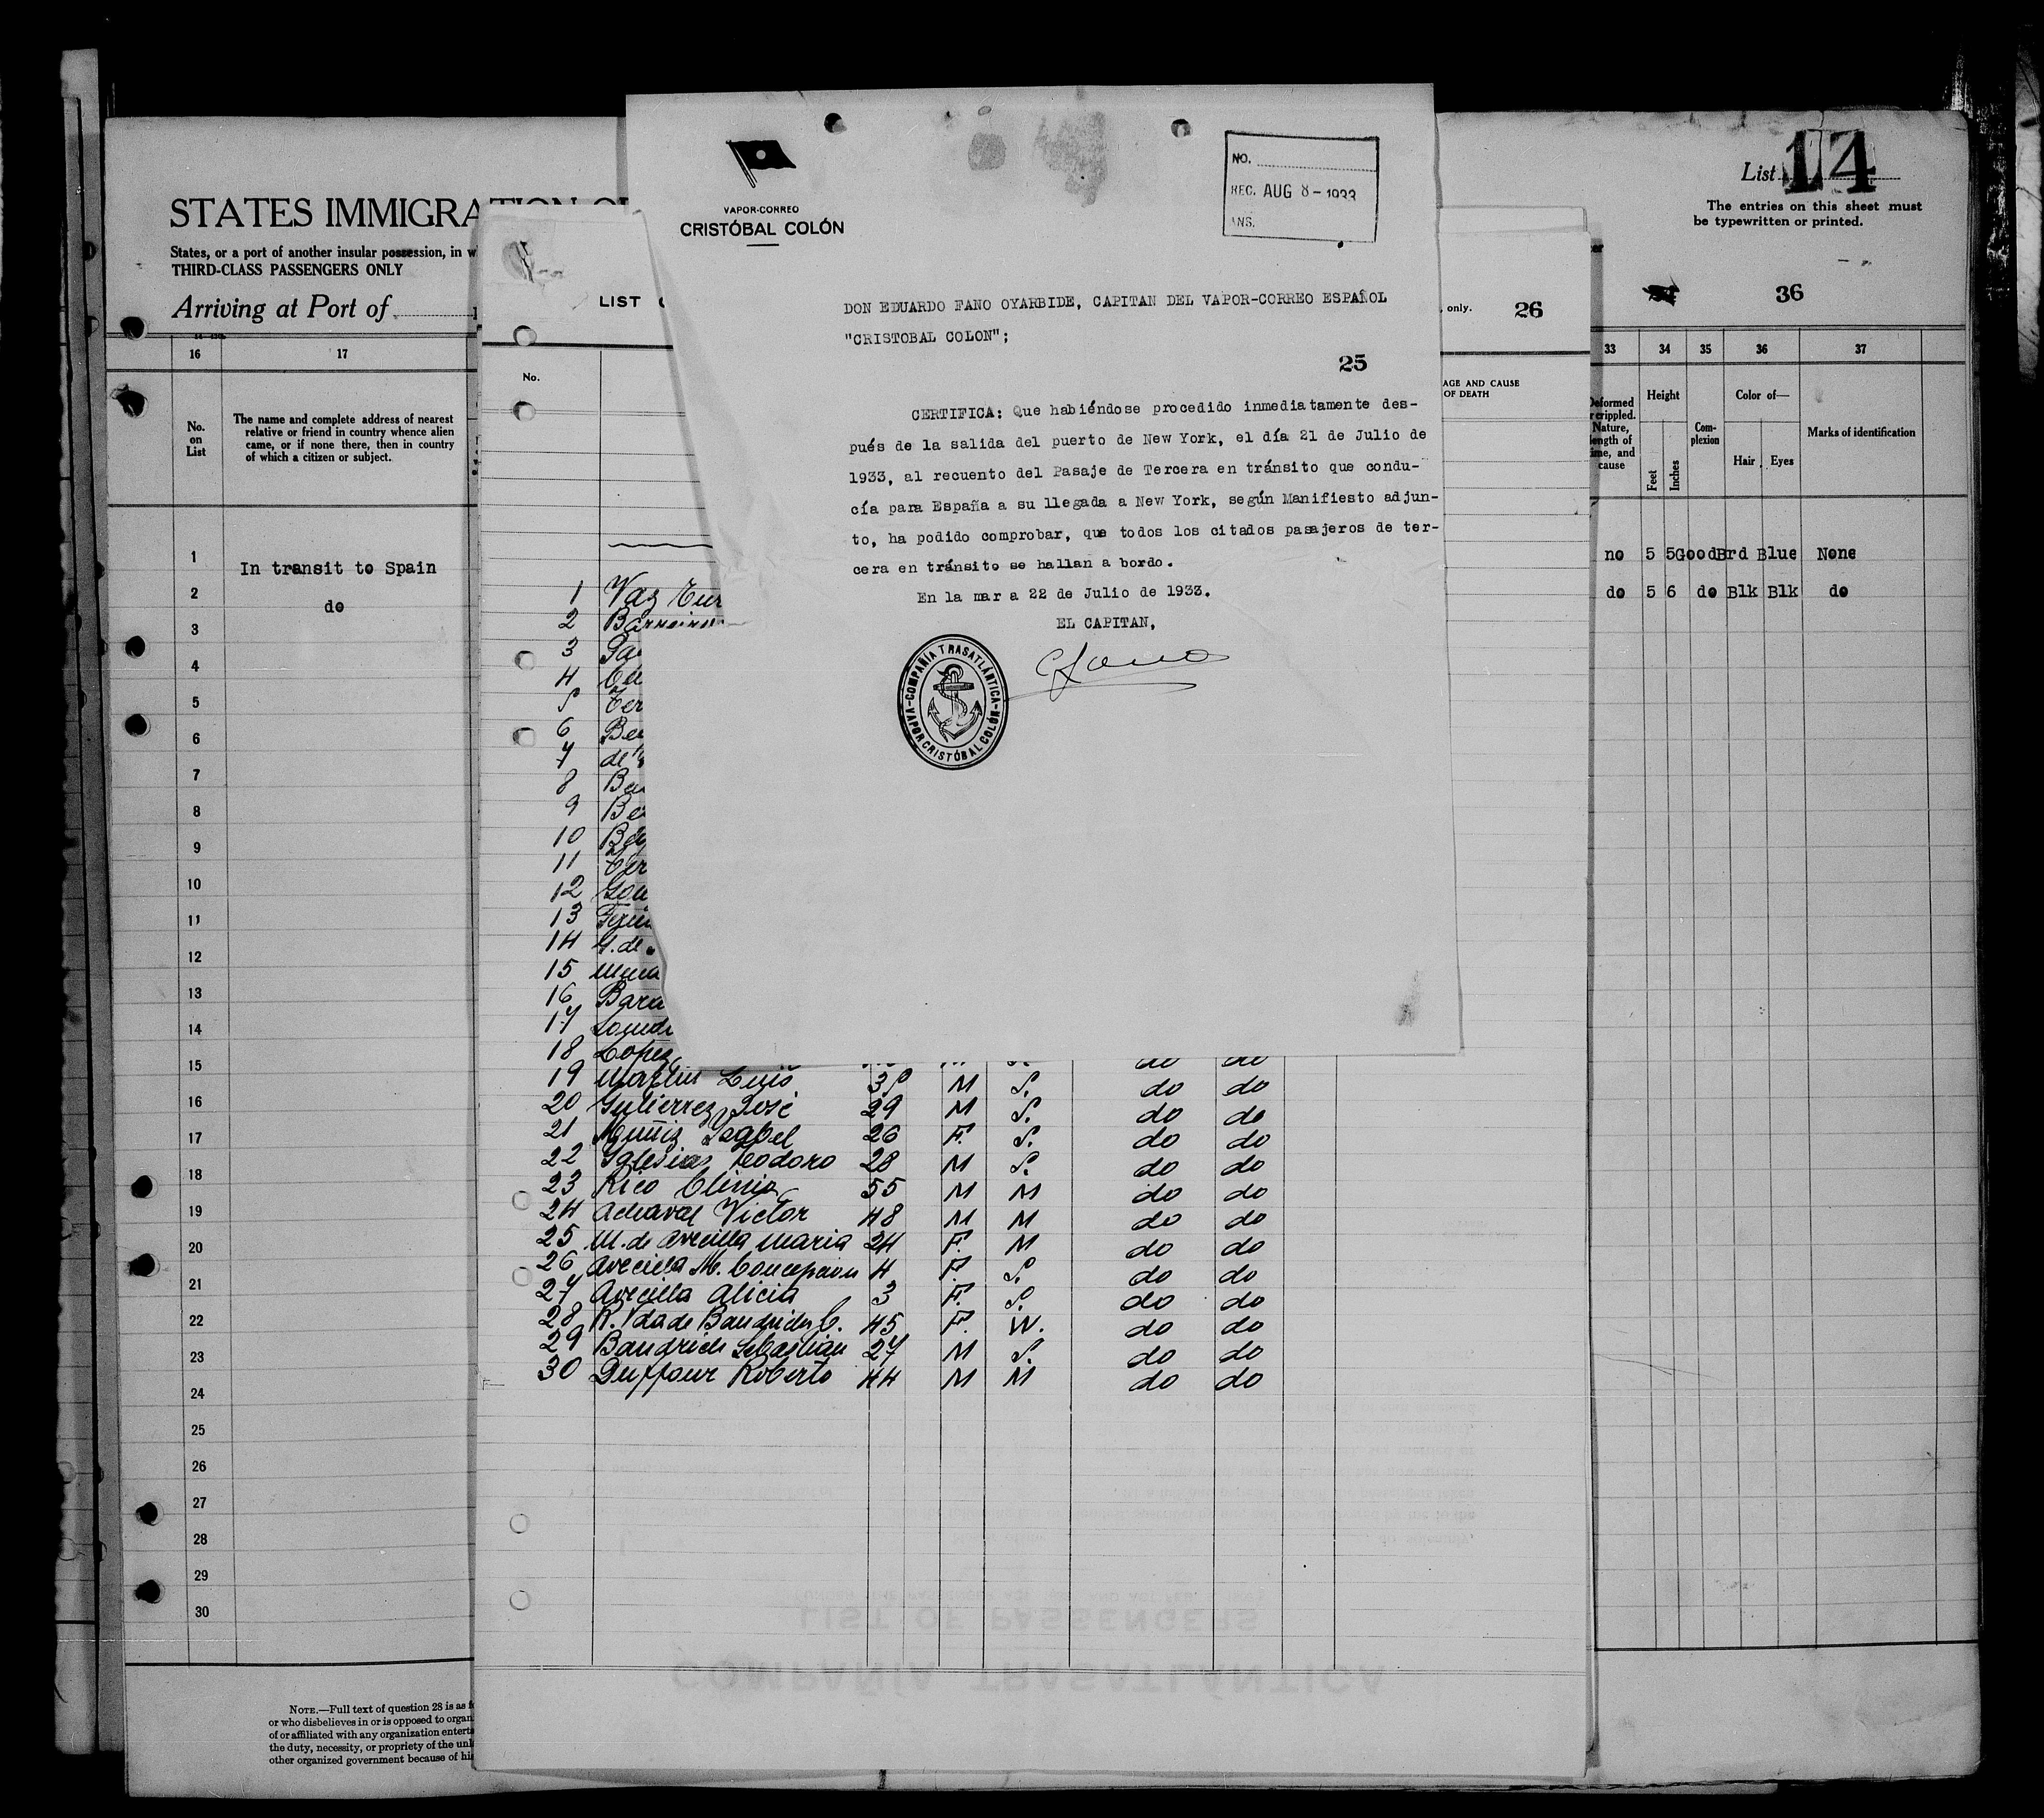 STATES IMMIGRA
States, or a port of another insular possession, in
THIRD-CLASS PASSENGERS ONLY
Arriving at Port of
16 17
No. on List
The name and complete address of nearest
relative or friend in country whence alien
came, or if none there, then in country
of which a citizen or subject.
1 In transit to Spain
2 do
3
4
5
6
7
8
9
10
11
12
13
14
15
16
17
18
19
20
21
22
23
24
25
26
27
28
29
30
NOTE.—Full text of question 28 is as
or who disbelieves in or is opposed to
of or affiliated with any organization
the duty, necessity, or propriety of the
other organized government because of
LIST
only. 26
No.
AGE AND CAUSE
OF DEATH
VAPOR-CORREO
CRISTÓBAL COLÓN
NO.
REC. AUG 8-1933
ANS.
DON EDUARDO FANO OYARBIDE, CAPITAN DEL VAPOR-CORREO ESPAÑOL
"CRISTOBAL COLON";
25
CERTIFICA: Que habiéndose procedido inmediatamente des-
pués de la salida del puerto de New York, el día 21 de Julio de
1933, al recuento del Pasaje de Tercera en tránsito que condu-
cía para España a su llegada a New York, según Manifiesto adjun-
to, ha podido comprobar, que todos los citados pasajeros de ter-
cera en tránsito se hallan a bordo.
En la mar a 22 de Julio de 1933.
EL CAPITAN,
EFano
COMPAÑÍA TRASATLÁNTICA
VAPOR CRISTÓBAL COLÓN
1 Vaz
2
3
4
5
6
7
8
9
10
11
12
13
14
15
16
17
18 Lopez
19 Martin Luis 35 M S. do do
20 Gutierrez José 29 M S. do do
21 Muñiz Isabel 26 F. S. do do
22 Iglesias Teodoro 28 M S. do do
23 Rico Clinio 55 M M do do
24 Achaval Victor 48 M M do do
25 M. de Avecilla Maria 24 F. M do do
26 Avecilla M. Concepcion 4 F. S. do do
27 Avecilla Alicia 3 F. S. do do
28 R. Vda de Baudrich C. 45 F. W. do do
29 Baudrich Sebastian 27 M S. do do
30 Duffour Roberto 44 M M do do
LIST OF PASSENGERS
COMPAÑÍA TRASATLÁNTICA
List 14
The entries on this sheet must
be typewritten or printed.
36
33 34 35 36 37
Deformed
or crippled.
Nature,
length of
time, and
cause
Height
Feet Inches
Com-
plexion
Color of—
Hair Eyes
Marks of identification
no 5 5 Good Brd Blue None
do 5 6 do Blk Blk do